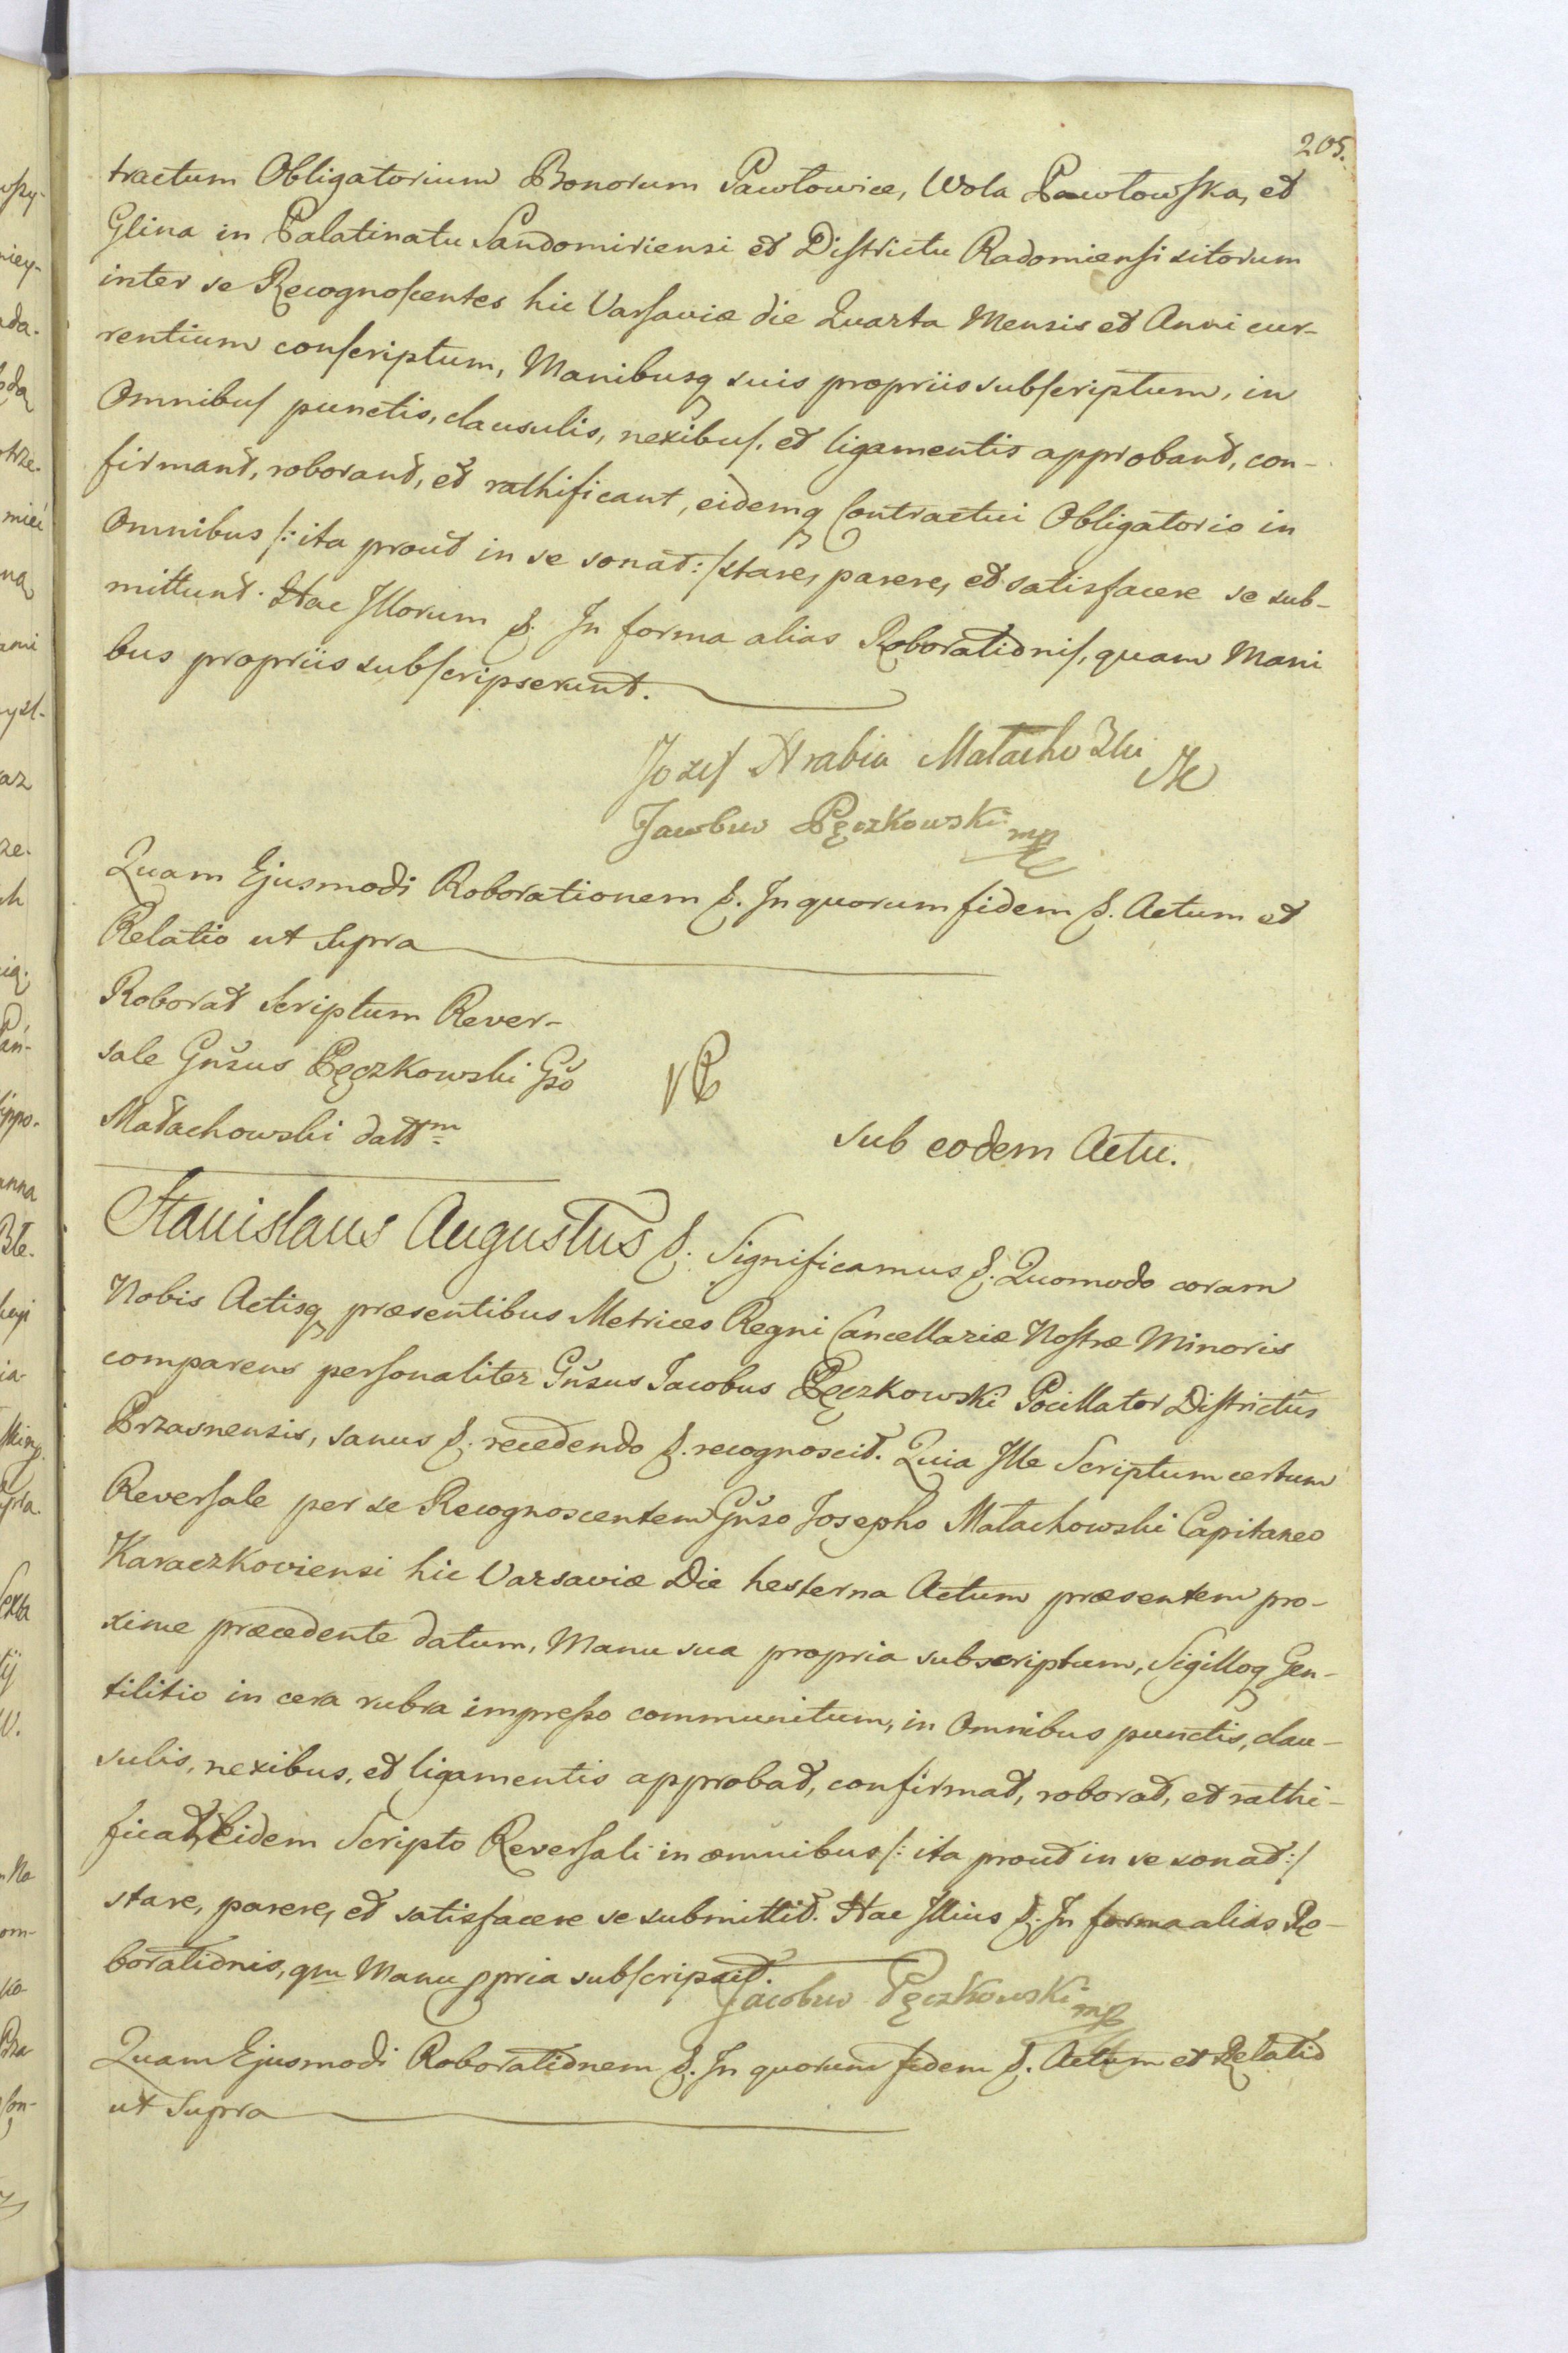 205.
tractum Obligatorium Bonorum Pawłowice, Wola Pawłowska, et
Glina in Palatinatu Sandomiriensi et Districtu Radomiensi sitorum
inter se Recognoscentes hic Varsaviæ die Quarta Mensis et Anni cur-
rentium conscriptum, Manibusq suis propriis subscriptum, in
Omnibus punctis, clausulis, nexibus, et ligamentis approbant, con-
firmant, roborant, et rathificant, eidemq Contractui Obligatorio in
Omnibus /: ita prout in se sonat :/ stare, parere, et satisfacere se sub-
mittunt. Hac Illorum &. In forma alias Roborationis, quam Mani
bus propriis subscripserunt.
Jozef Hrabia Małachowski
Jacobus Pęczkowski mp
Quam Ejusmodi Roborationem &. In quorum fidem &. Actum et
Relatio ut Supra
Roborat Scriptum Rever-
sale Gñsus Pęczkowski Gso
Małachowski datt.m
sub eodem Actu.
Stanislaus Augustus &. Significamus &. Quomodo coram
Nobis Actisq præsentibus Metrices Regni Cancellariæ Nostræ Minoris
comparens personaliter Gñsus Jacobus Pęczkowski Pocillator Districtûs
Przasnensis, sanus &. recedendo &. recognoscit. Quia Ille Scriptum certum
Reversale per se Recognoscentem Gñso Josepho Małachowski Capitaneo
Karaczkoviensi hic Varsaviæ Die hesterna Actum præsentem pro-
xime præcedente datum, Manu sua propria subscriptum, Sigilloq Gen-
tilitio in cera rubra impresso communitum, in Omnibus punctis, clau-
sulis, nexibus, et ligamentis approbat, confirmat, roborat, et rathi-
ficat, Eidem Scripto Reversali in omnibus /: ita prout in se sonat :/
stare, parere, et satisfacere se submittit. Hac Illius &. In forma alias Ro-
borationis, qm Manu ppria subscripsit.
Jacobus Pęczkowski mp
Quam Ejusmodi Roborationem &. In quorum fidem &. Actum et Relatio
ut Supra